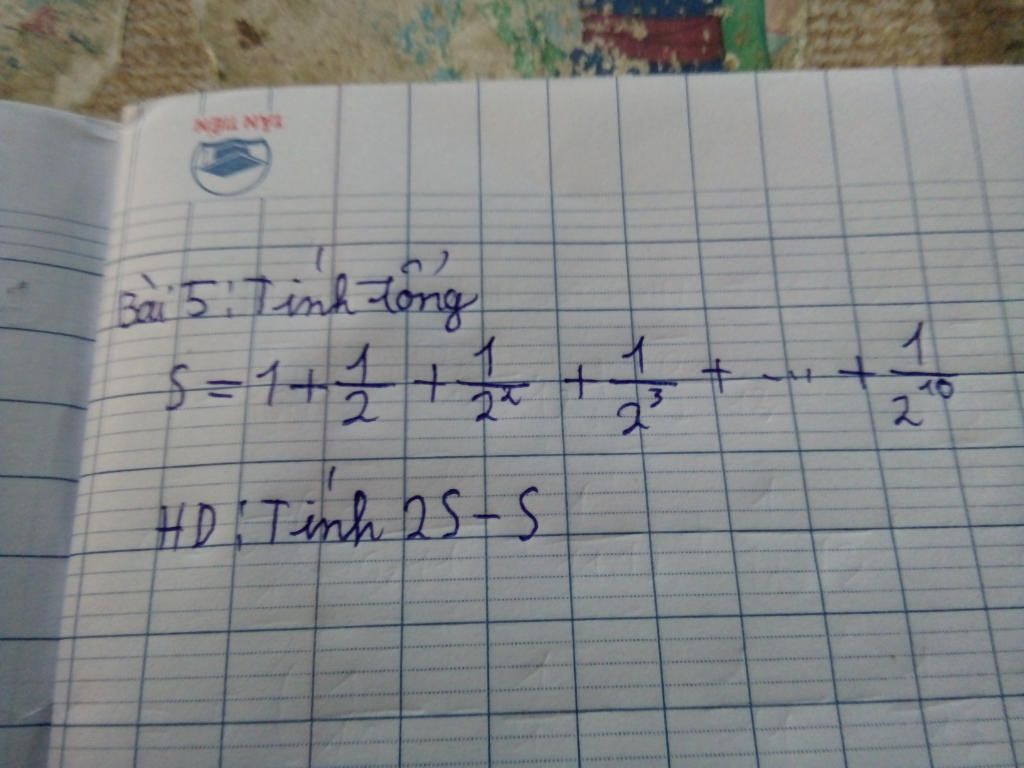 TÂN TIẾN
Bài 5: Tính tổng
S = 1 + 1/2 + 1/2² + 1/2³ + ... + 1/2¹⁰
HD: Tính 2S - S